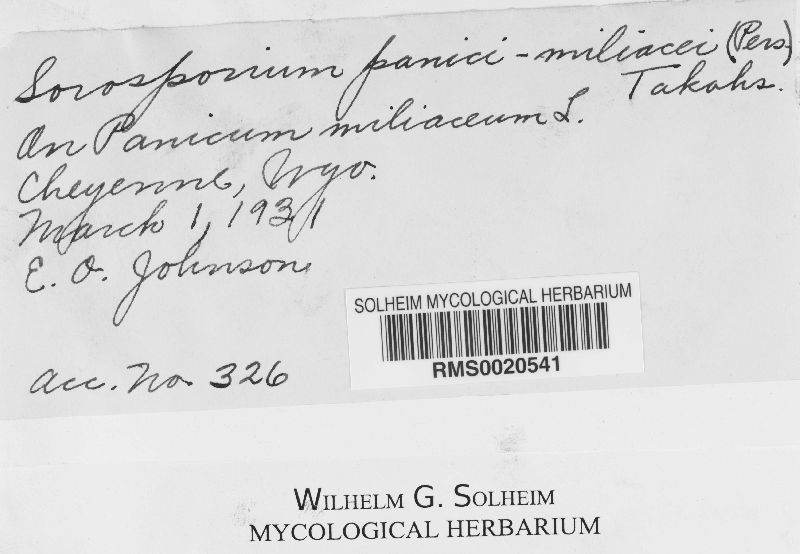 Sorosporium panici-miliacei (Pers.)
Takahs.
On Panicum miliaceum L.
Cheyenne, Wyo.
March 1, 1931
E. O. Johnson
Acc. No. 326
SOLHEIM MYCOLOGICAL HERBARIUM
RMS0020541
WILHELM G. SOLHEIM
MYCOLOGICAL HERBARIUM